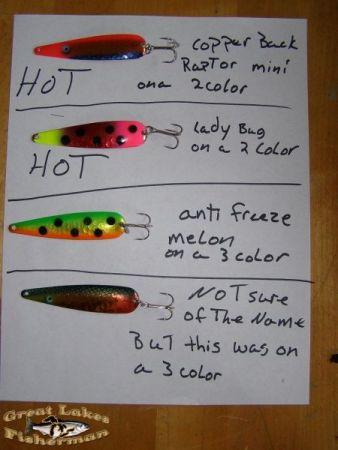 copper Back
Raptor mini
HOT
on a 2 color
Lady Bug
on a 2 color
HOT
anti freeze
melon
on a 3 color
NOT sure
of The Name
BuT this was on
a 3 color
Great Lakes
Fisherman